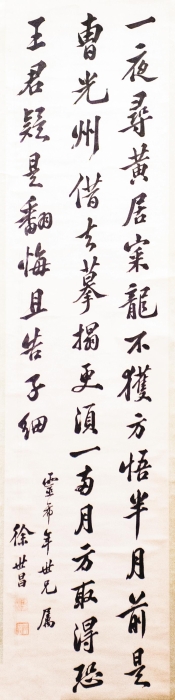 一夜尋黃居寀龍不獲方悟半月前是
曹光州借去摹搨更須一兩月方取得恐
王君疑是翻悔且告子細
霊希年世兄屬
徐世昌